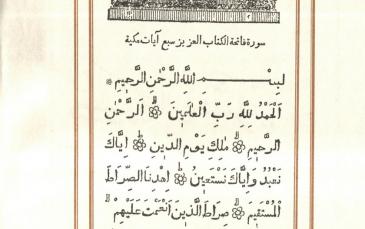 سورة فاتحة الكتاب العزيز سبع آيات مكية
بِسْمِ اللَّهِ الرَّحْمٰنِ الرَّحِيمِ
اَلْحَمْدُ لِلّٰهِ رَبِّ الْعٰلَمِينَ ۝ اَلرَّحْمٰنِ
الرَّحِيمِ ۝ مٰلِكِ يَوْمِ الدِّينِ ۝ اِيَّاكَ
نَعْبُدُ وَاِيَّاكَ نَسْتَعِينُ ۝ اِهْدِنَا الصِّرَاطَ
الْمُسْتَقِيمَ ۝ صِرَاطَ الَّذِينَ اَنْعَمْتَ عَلَيْهِمْ ۝